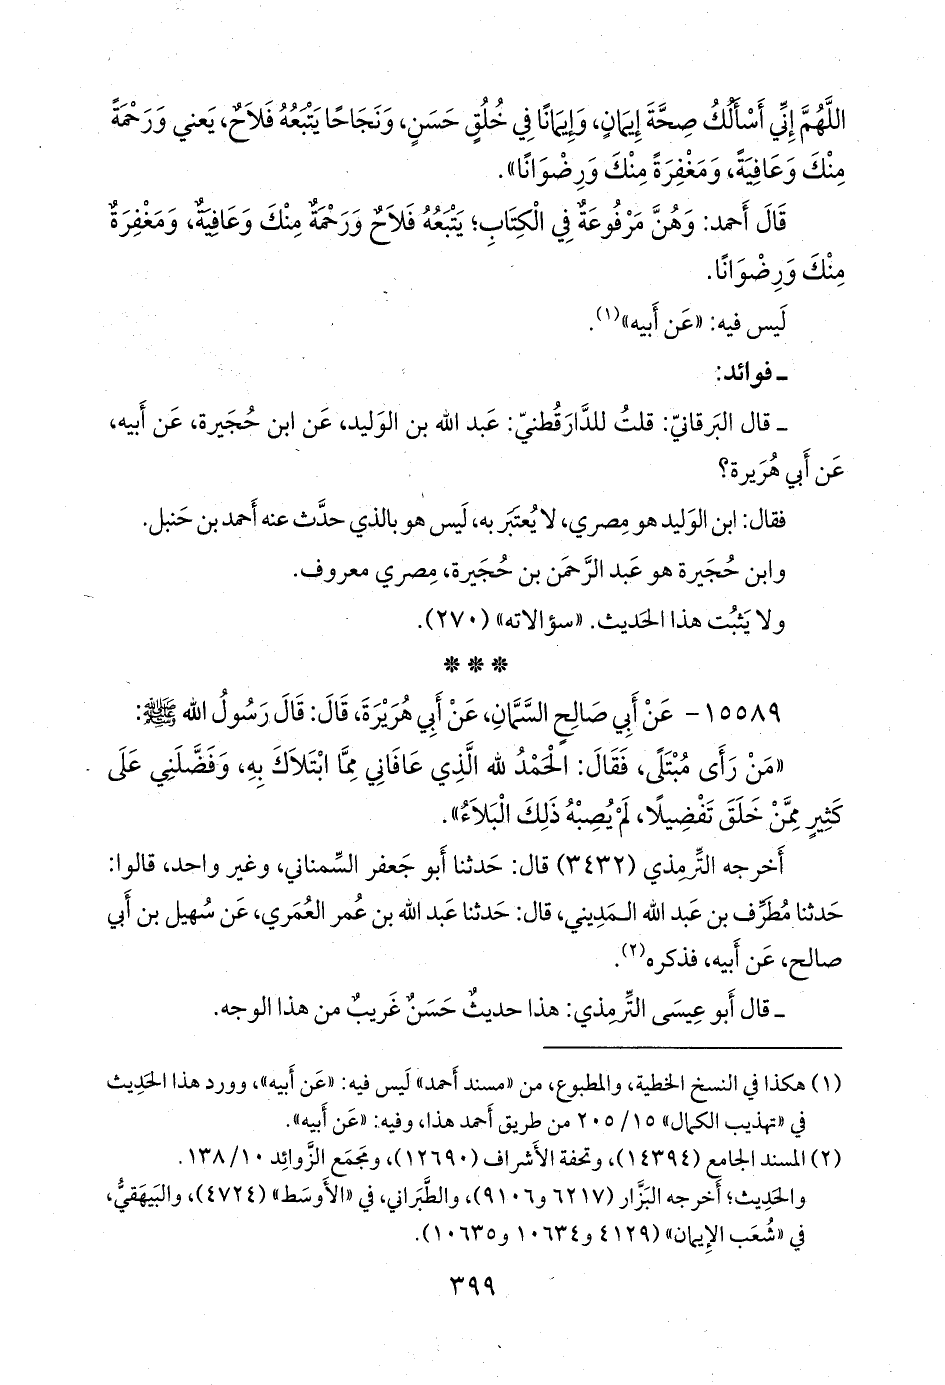 اللَّهُمَّ إِنِّي أَسْأَلُكُ صِحَّةَ إِيمَانٍ، وَإِيمَانًا فِي خُلُقٍ حَسَنٍ، وَنَجَاحًا يَتْبَعُهُ فَلاَحٌ، يَعني وَرَحْمَةً
مِنْكَ وَعَافِيَةً، وَمَغْفِرَةً مِنْكَ وَرِضْوَانًا».
قَالَ أَحمد: وَهُنَّ مَرْفُوعَةٌ فِي الْكِتَابِ؛ يَتْبَعُهُ فَلاَحٌ وَرَحْمَةٌ مِنْكَ وَعَافِيَةٌ، وَمَغْفِرَةٌ
مِنْكَ وَرِضْوَانًا.
لَيس فيه: «عَن أَبيه»(١).
ـ فوائد:
ـ قال البَرقانيّ: قلتُ للدَّارَقُطنيّ: عَبد الله بن الوَليد، عَن ابن حُجَيرة، عَن أَبيه،
عَن أَبي هُرَيرة؟
فقال: ابن الوَليد هو مِصري، لا يُعتَبَر به، لَيس هو بالذي حدَّث عنه أَحمد بن حَنبل.
وابن حُجَيرة هو عَبد الرَّحمَن بن حُجَيرة، مِصري معروف.
ولا يَثبُت هذا الحَديث. «سؤالاته» (٢٧٠).
* * *
١٥٥٨٩- عَنْ أَبِي صَالِحٍ السَّمَّانِ، عَنْ أَبِي هُرَيْرَةَ، قَالَ: قَالَ رَسُولُ الله ﷺ:
«مَنْ رَأَى مُبْتَلًى، فَقَالَ: الْحَمْدُ لله الَّذِي عَافَانِي مِمَّا ابْتَلاَكَ بِهِ، وَفَضَّلَنِي عَلَى
كَثِيرٍ مِمَّنْ خَلَقَ تَفْضِيلًا، لَمْ يُصِبْهُ ذَلِكَ الْبَلاَءُ».
أَخرجه التِّرمِذي (٣٤٣٢) قال: حَدثنا أَبو جَعفر السِّمناني، وغير واحد، قالوا:
حَدثنا مُطَرِّف بن عَبد الله الـمَدِيني، قال: حَدثنا عَبد الله بن عُمر العُمَري، عَن سُهيل بن أَبي
صالح، عَن أَبيه، فذكره(٢).
ـ قال أَبو عِيسَى التِّرمِذي: هذا حديثٌ حَسَنٌ غَريبٌ من هذا الوجه.
(١) هكذا في النسخ الخطية، والمطبوع، من «مسند أَحمد» لَيس فيه: «عَن أَبيه»، وورد هذا الحَدِيث
في «تهذيب الكمال» ١٥/ ٢٠٥ من طريق أَحمد هذا، وفيه: «عَن أَبيه».
(٢) المسند الجامع (١٤٣٩٤)، وتحفة الأَشراف (١٢٦٩٠)، ومَجمَع الزَّوائِد ١٠/ ١٣٨.
والحَدِيث؛ أَخرجه البَزَّار (٦٢١٧ و٩١٠٦)، والطَّبَراني، في «الأَوسَط» (٤٧٢٤)، والبَيهَقيُّ،
في «شُعَب الإِيمان» (٤١٢٩ و١٠٦٣٤ و١٠٦٣٥).
٣٩٩